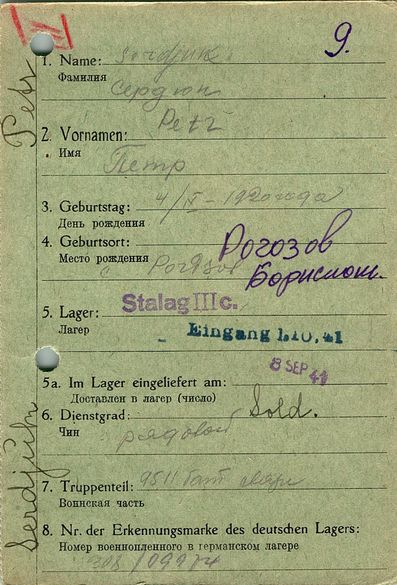 9.
Petr
Serdjuk
1. Name: Serdjuk
Фамилия
Сердюк
2. Vornamen: Petr
Имя
Петр
3. Geburtstag: 4/IV - 1920 года
День рождения
4. Geburtsort: Рогозов
Место рождения
с Рогозов
Борисполь.
5. Lager: Stalag III c.
Лагер
Eingang 1.10.41
8 SEP 41
5a. Im Lager eingeliefert am:
Доставлен в лагер (число)
6. Dienstgrad: Sold.
Чин
рядовой
7. Truppenteil: 9511 бат связи
Воинская часть
8. Nr. der Erkennungsmarke des deutschen Lagers:
Номер военнопленного в германском лагере